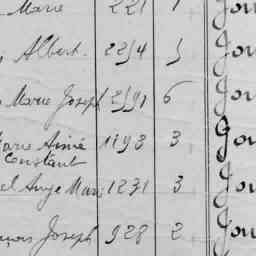 Marie 221 1 Jou
Albert. 2254 5 Jou
Marie Joseph 2591 6 Jou
Marie Aimé 1193 3 Jou
Constant
el Ange Mari 1231 3 Jou
Joseph 928 2 Jou